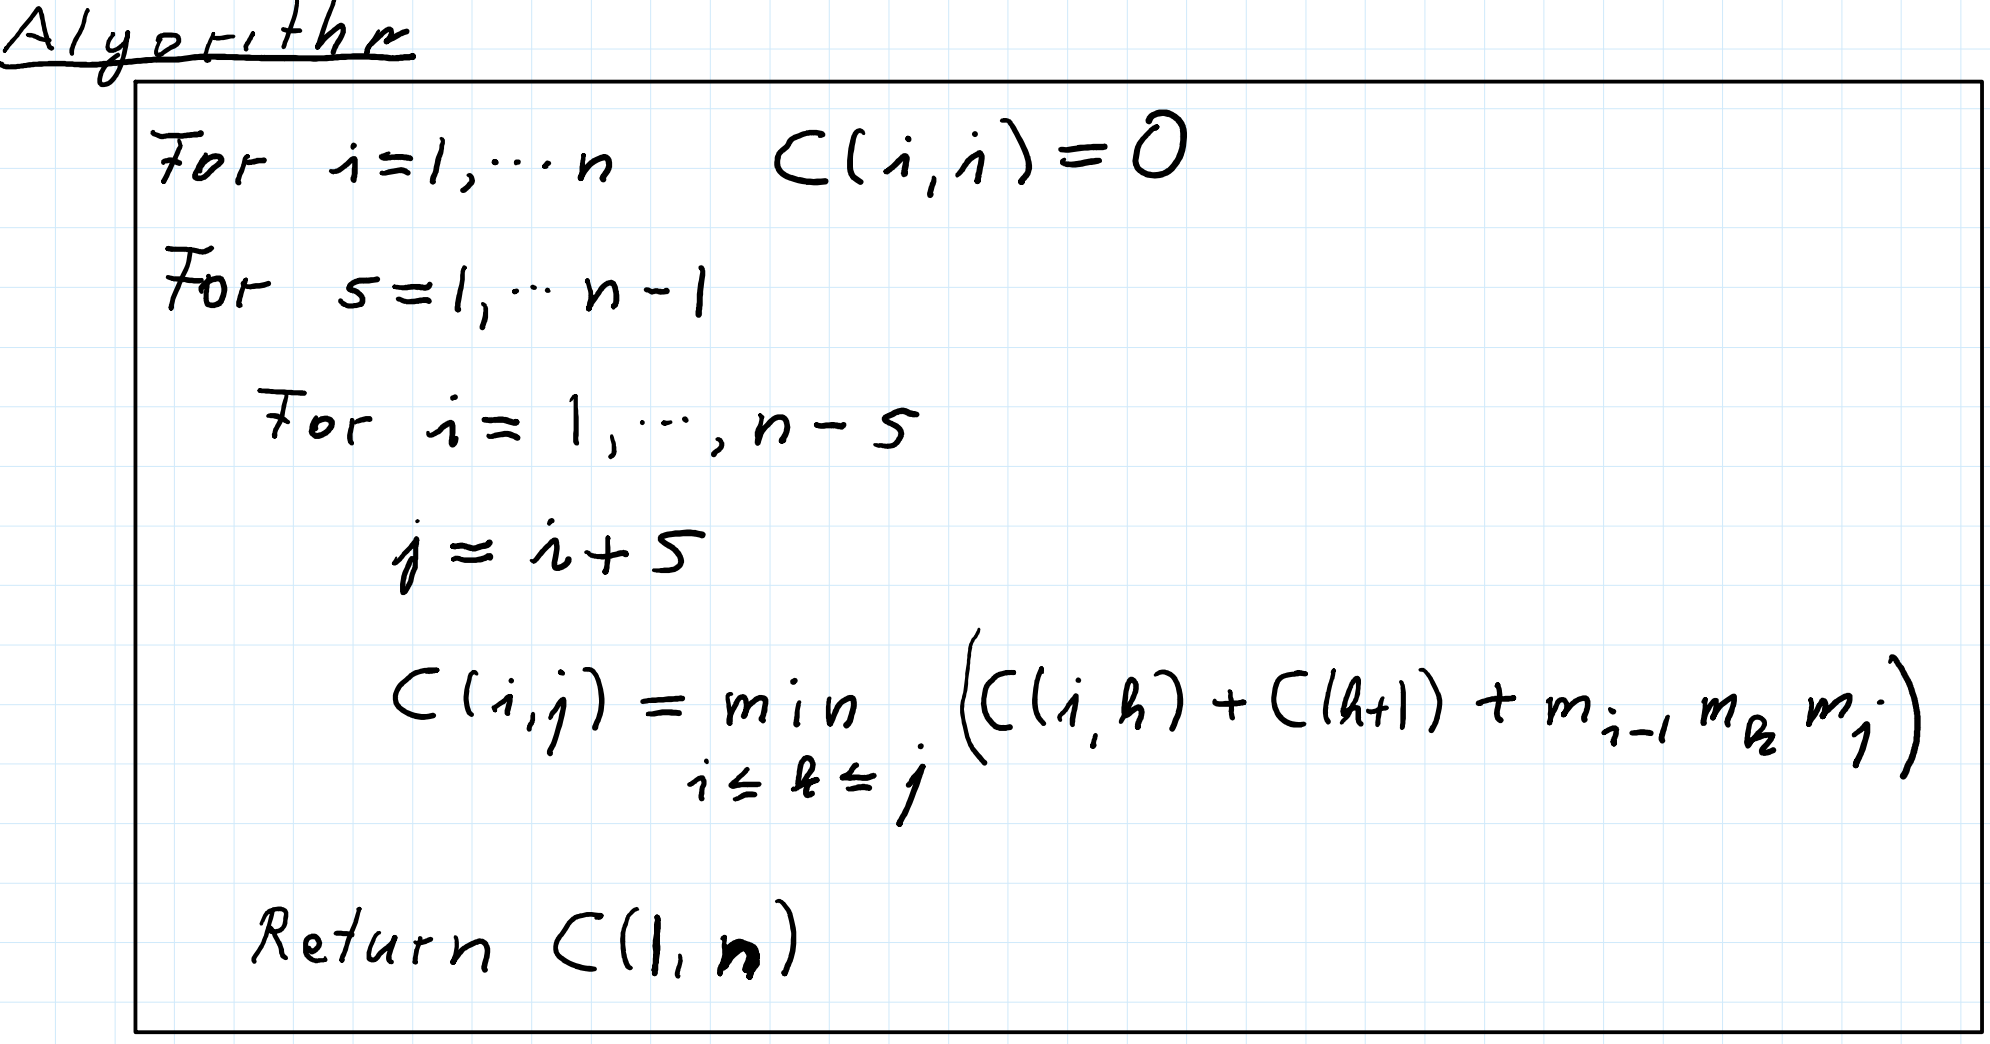 Algorithm
For i=1,... n C(i,i)=0
For s=1,... n-1
For i= 1,...,n-s
j = i+s
C(i,j) = min (C(i,k) + C(k+1) + m_{i-1} m_k m_j)
i ≤ k ≤ j
Return C(1,n)